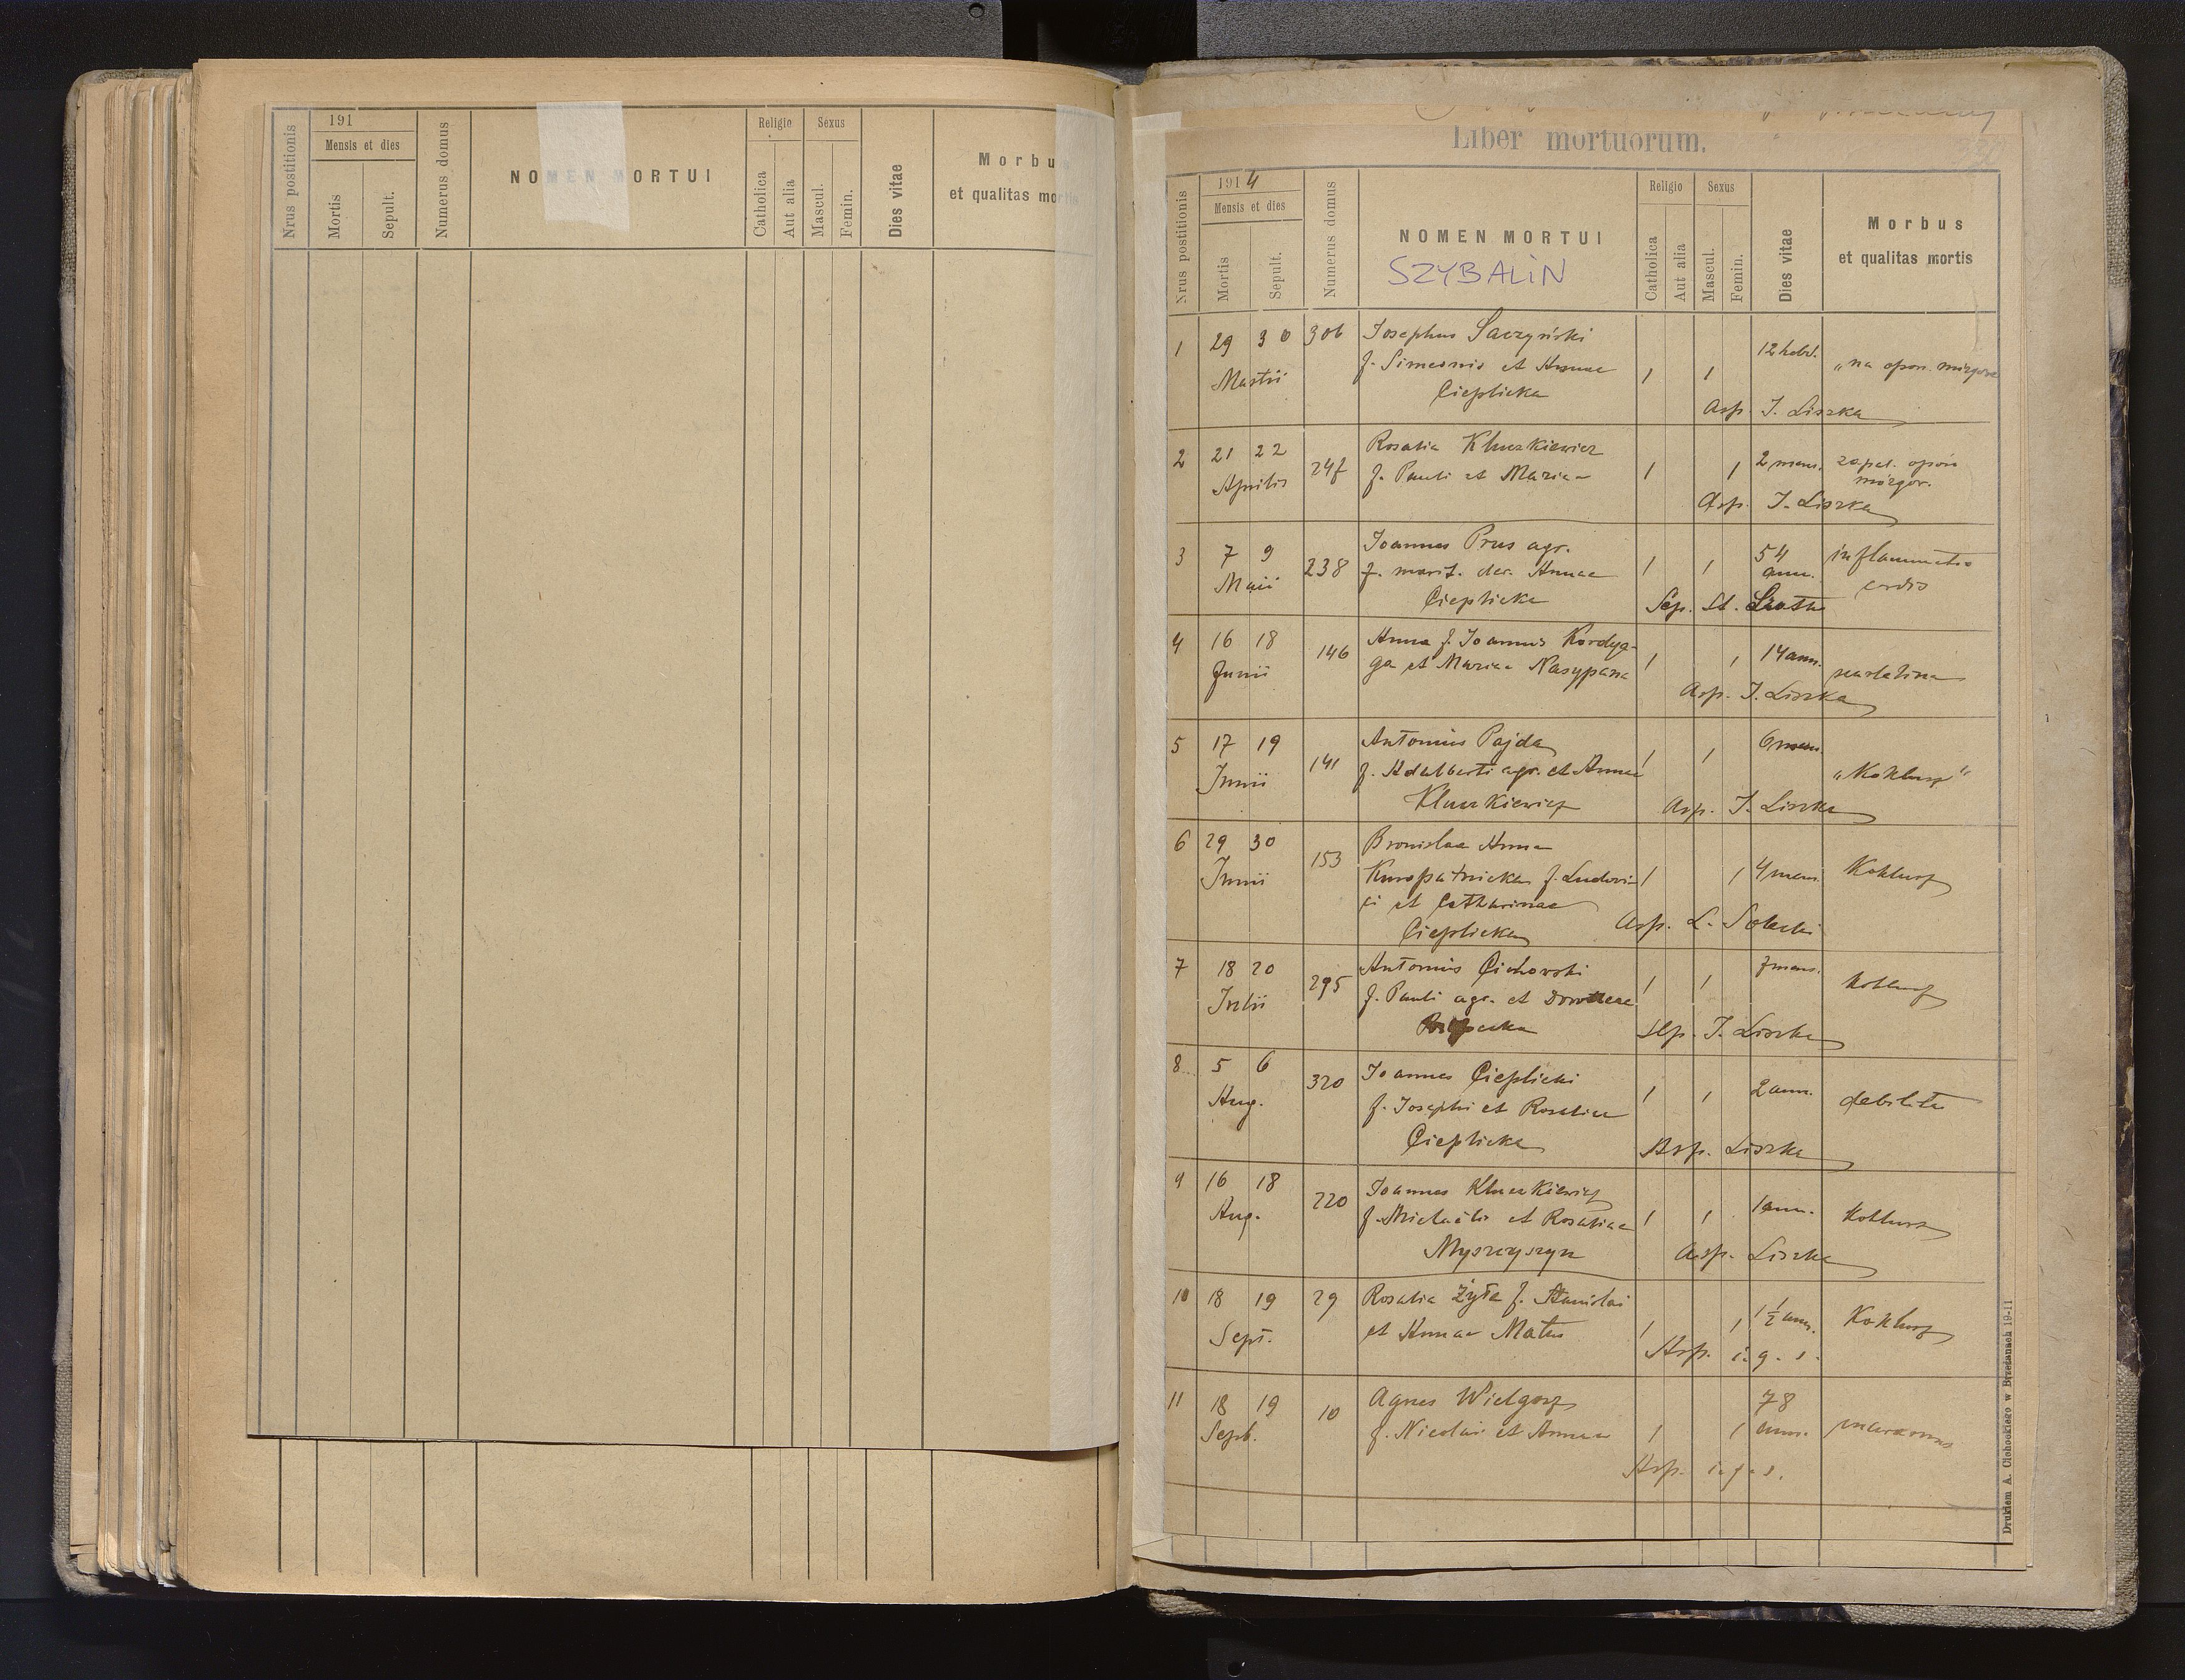 191
Mensis et dies
Nrus postitionis
Mortis
Sepult.
Numerus domus
NOMEN MORTUI
Religio
Catholica
Aut alia
Sexus
Mascul.
Femin.
Dies vitae
Morbu
et qualitas mor
Liber mortuorum.
Nrus postitionis
1914
Mensis et dies
Mortis
Sepult.
Numerus domus
NOMEN MORTUI
SZYBALIN
Religio
Catholica
Aut alia
Sexus
Mascul.
Femin.
Dies vitae
Morbus
et qualitas mortis
1 29 30 306 Josephus
Martii f. Simeonis et Annae 1 1 12 hebd. „na opon.
Cieplicka
Asp. J. Liszka
2 21 22 247 Rosalia Kluczkiewicz
Aprilis f. Pauli et Mariae 1 1 2 mens. zapal. opon
mózgow.
Asp. J. Liszka
3 7 9 238 Joannes Prus agr.
Maii f. marit. der. Annae 1 1 54 ann. inflammatio
Cieplicka cordis
Sep. St.
4 16 18 146 Anna f. Joannis Kordya-
Junii ga et Mariae Nasypana 1 1 14 ann. scarlatina
Asp. J. Liszka
5 17 19 141 Antonius Pajda
Junii f. Adalberti agr. et Annae 1 1 6 mens. „Koklusz"
Kluczkiewicz
Asp. J. Liszka
6 29 30 153 Bronislaa Anna
Junii Kuropatnicka f. Ludovi- 1 1 4 mens. Koklusz
ci et Catharinae
Cieplicka
Asp. L. Solecki
7 18 20 295 Antonius Cichowski
Julii f. Pauli agr. et Dorotheae 1 1 7 mens. Koklusz
Asp. J. Liszka
8 5 6 320 Joannes Cieplicki
Aug. f. Josephi et Rosaliae 1 1 2 ann. debilitas
Cieplicka
Asp. Liszka
9 16 18 220 Joannes Kluczkiewicz
Aug. f. Michaëlis et Rosaliae 1 1 1 ann. Koklusz
Myszczyszyn
Asp. Liszka
10 18 19 29 Rosalia Żyła f. Stanislai
Sept. et Annae Matus 1 1 1 1/2 ann. Koklusz
Asp. i. q. s.
11 18 19 10 Agnes Wielgosz
Septb. f. Nicolai et Annae 1 1 78 ann. marasmus
Asp. i. q. s.
Drukiem A. Cichockiego w Brzeżanach 19-11